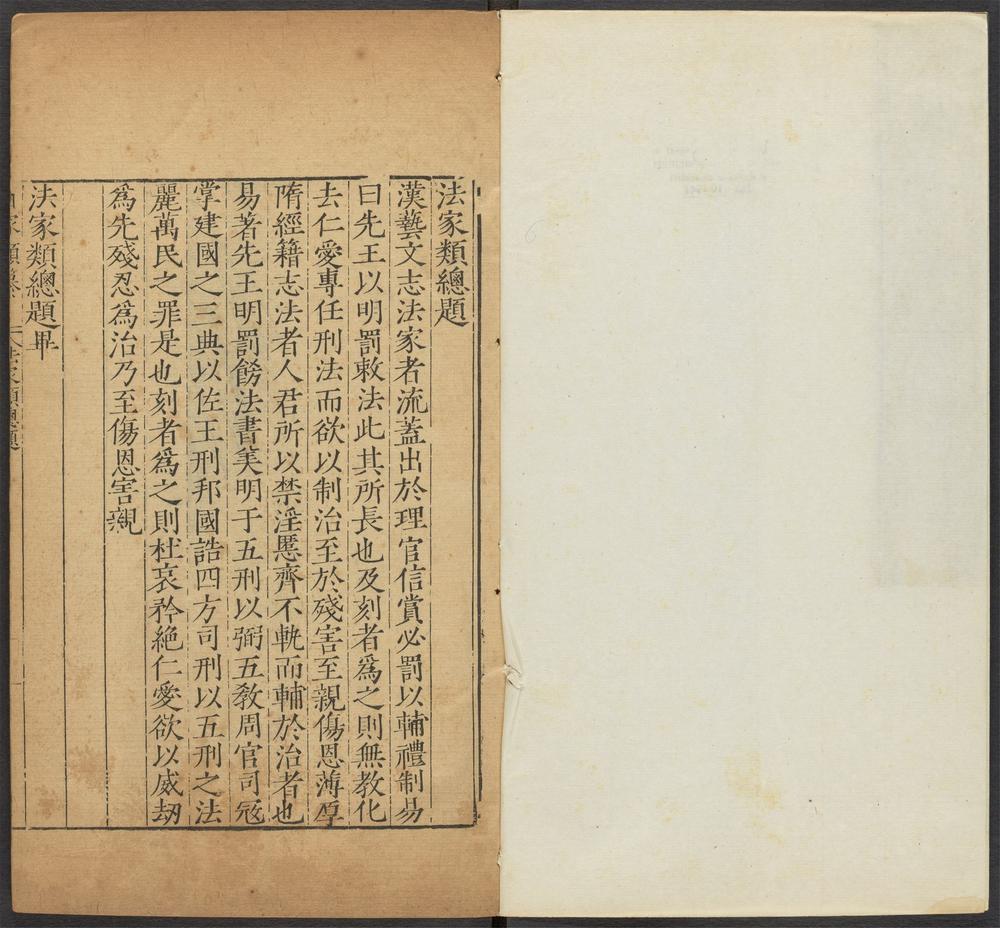 法家類總題
漢藝文志法家者流蓋出於理官信賞必罰以輔禮制易
曰先王以明罰敕法此其所長也及刻者爲之則無教化
去仁愛專任刑法而欲以制治至於殘害至親傷恩薄厚
隋經籍志法者人君所以禁淫慝齊不軌而輔於治者也
易著先王明罰飭法書美明于五刑以弼五教周官司寇
掌建國之三典以佐王刑邦國詰四方司刑以五刑之法
麗萬民之罪是也刻者爲之則杜哀矜絶仁愛欲以威刼
爲先殘忍爲治乃至傷恩害親
法家類總題畢
法家類總題